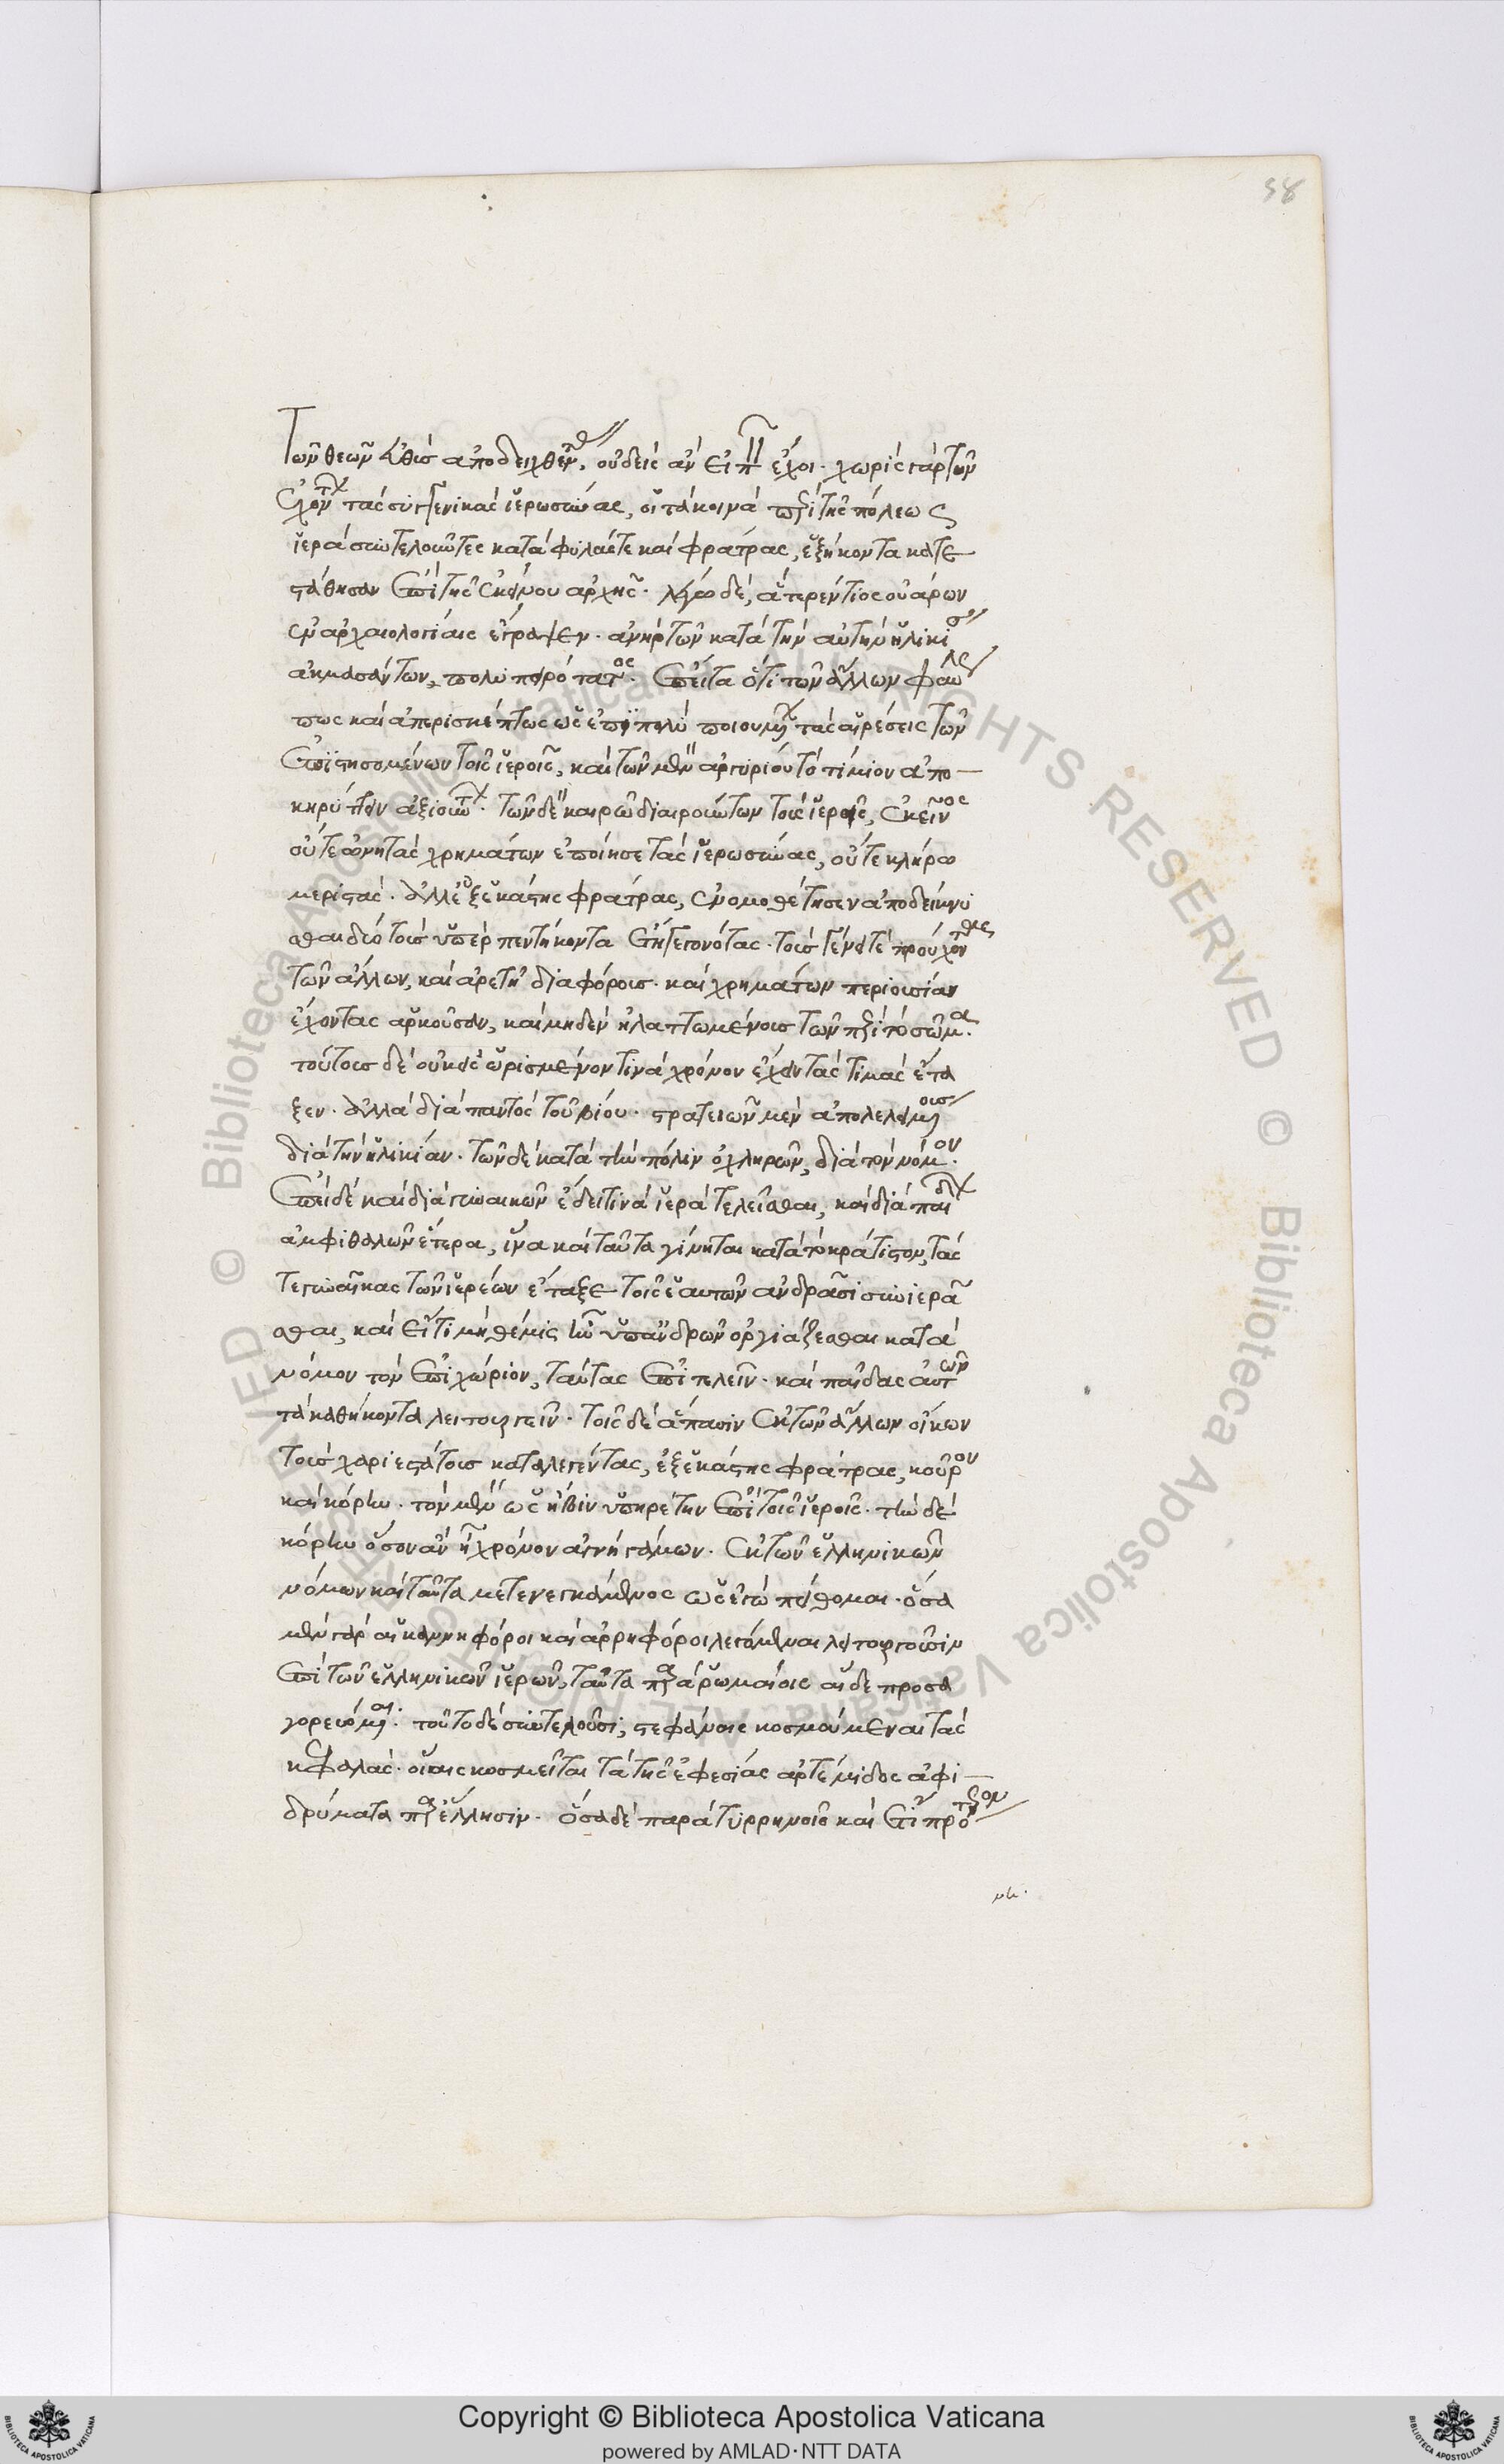 58
Τῶν θεῶν εὐθὺς ἀποδειχθέντας, οὐδεὶς ἂν εἰπεῖν ἔχοι. χωρὶς γὰρ τῶν
ἐχόντων τὰς συγγενικὰς ἱερωσύνας, οἱ τὰ κοινὰ περὶ τῆς πόλεως
ἱερὰ συντελοῦντες κατὰ φυλάς τε καὶ φράτρας, ἑξήκοντα κατε
στάθησαν ἐπὶ τῆς ἐκείνου ἀρχῆς. λέγω δὲ, ἃ τερέντιος οὐάρων
ἐν ἀρχαιολογίαις ἔγραψεν. ἀνὴρ τῶν κατὰ τὴν αὐτὴν ἡλικίαν
ἀκμασάντων, πολυπειρότατος. ἔπειτα ὅτι τῶν ἄλλων φαύλως
πως καὶ ἀπερισκέπτως ὡς ἐπὶ πολὺ ποιουμένων τὰς αἱρέσεις τῶν
ἐπιστησομένων τοῖς ἱεροῖς, καὶ τῶν μὲν ἀργυρίου τὸ τίμιον ἀπο
κηρύττειν ἀξιούντων. τῶν δὲ κλήρω διαιρούντων τοῖς ἱεροῖς, ἐκεῖνος
οὔτε ὠνητὰς χρημάτων ἐποίησε τὰς ἱερωσύνας, οὔτε κλήρω
μεριστάς. ἀλλ' ἐξ ἑκάστης φράτρας, ἐνομοθέτησεν ἀποδείκνυ
σθαι δύο τοὺς ὑπὲρ πεντήκοντα ἔτη γεγονότας. τοὺς γένει τε προύχοντας
τῶν ἄλλων, καὶ ἀρετῇ διαφόρους. καὶ χρημάτων περιουσίαν
ἔχοντας ἀρκοῦσαν, καὶ μηδὲν ἠλαττωμένους τῶν περὶ τὸ σῶμα.
τούτους δὲ οὐκ εἰς ὡρισμένον τινὰ χρόνον ἔχειν τὰς τιμὰς ἔτα
ξεν. ἀλλὰ διὰ παντὸς τοῦ βίου. στρατειῶν μὲν ἀπολελυμένους
διὰ τὴν ἡλικίαν. τῶν δὲ κατὰ τὴν πόλιν ὀχληρῶν, διὰ τὸν νόμον.
ἐπεὶ δὲ καὶ διὰ γυναικῶν ἔδει τινὰ ἱερὰ τελεῖσθαι, καὶ διὰ παίδων
ἀμφιθαλῶν ἕτερα, ἵνα καὶ ταῦτα γίνηται κατὰ τὸ κράτιστον, τάς
τε γυναῖκας τῶν ἱερέων ἔταξε τοῖς ἑαυτῶν ἀνδράσι συνιερᾶ
σθαι, καὶ εἴ τι μὴ θέμις ἦν ὑπ' ἀνδρῶν ὀργιάζεσθαι κατὰ
νόμον τὸν ἐπιχώριον, ταύτας ἐπιτελεῖν. καὶ παῖδας αὐτῶν
τὰ καθήκοντα λειτουργεῖν. τοῖς δὲ ἅπασιν ἐκ τῶν ἄλλων οἴκων
τοὺς χαριεστάτους καταλεγέντας, ἐξ ἑκάστης φράτρας, κοῦρον
καὶ κόρην. τὸν μὲν ὡς ἥβην ὑπηρέτην ἐπὶ τοῖς ἱεροῖς. τὴν δὲ
κόρην ὅσον ἂν ᾖ χρόνον ἁγνὴ γάμων. ἐκ τῶν ἑλληνικῶν
νόμων καὶ ταῦτα μετενεγκάμενος ὡς ἐγὼ πείθομαι. ὅσα
μὲν γὰρ αἱ κανηφόροι καὶ ἀρρηφόροι λεγόμεναι λειτουργοῦσιν
ἐπὶ τῶν ἑλληνικῶν ἱερῶν, ταῦτα παρὰ ῥωμαίοις αἵδε προσα
γορευόμεναι. τοῦτο δὲ συντελοῦσι, στεφάνοις κοσμούμεναι τὰς
κεφαλάς. οἵαις κοσμεῖται τὰ τῆς ἐφεσίας ἀρτέμιδος ἀφι
δρύματα παρ' ἕλλησιν. ὅσα δὲ παρὰ τυρρηνοῖς καὶ ἔτι πρότερον
Copyright © Biblioteca Apostolica Vaticana
powered by AMLAD·NTT DATA